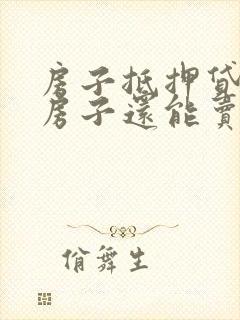 房子抵押貸
房子還能賣
俏舞生